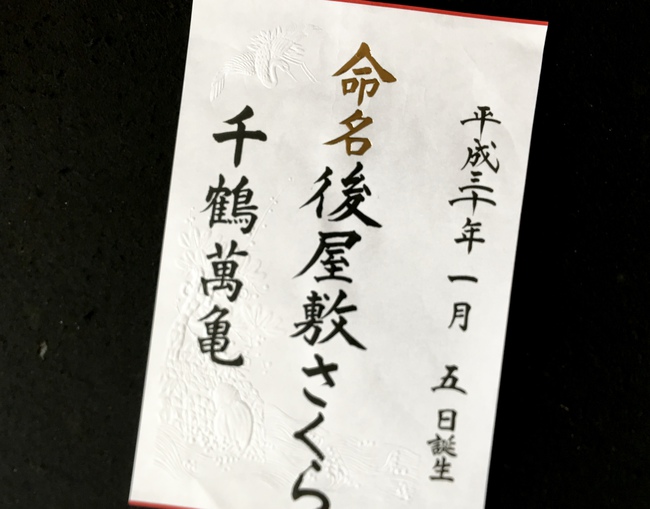 平成三十年一月五日誕生
命名後屋敷さくら
千鶴萬亀